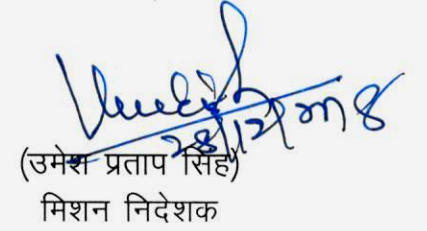 28/12/2018
(उमेश प्रताप सिंह)
मिशन निदेशक